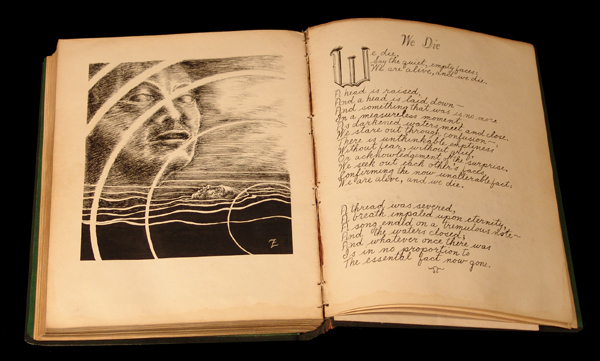 We Die
We die,
Say the quiet, empty faces,
We are alive, and we die.
A head is raised,
And a head is laid down—
And something that was is no more
In a measureless moment,
As darkened waters meet and close.
We stare out through confusion—,
There is unthinkable emptiness
Without fear, without grief,
Or acknowledgement of the surprise.
We seek out each other's faces,
Confirming the now unalterable fact,
We are alive, and we die.
A thread was severed,
A breath impaled upon eternity,
A song ended on a tremulous note—
And the waters closed;
And whatever once there was
Is in no proportion to
The essential fact now gone.
Z